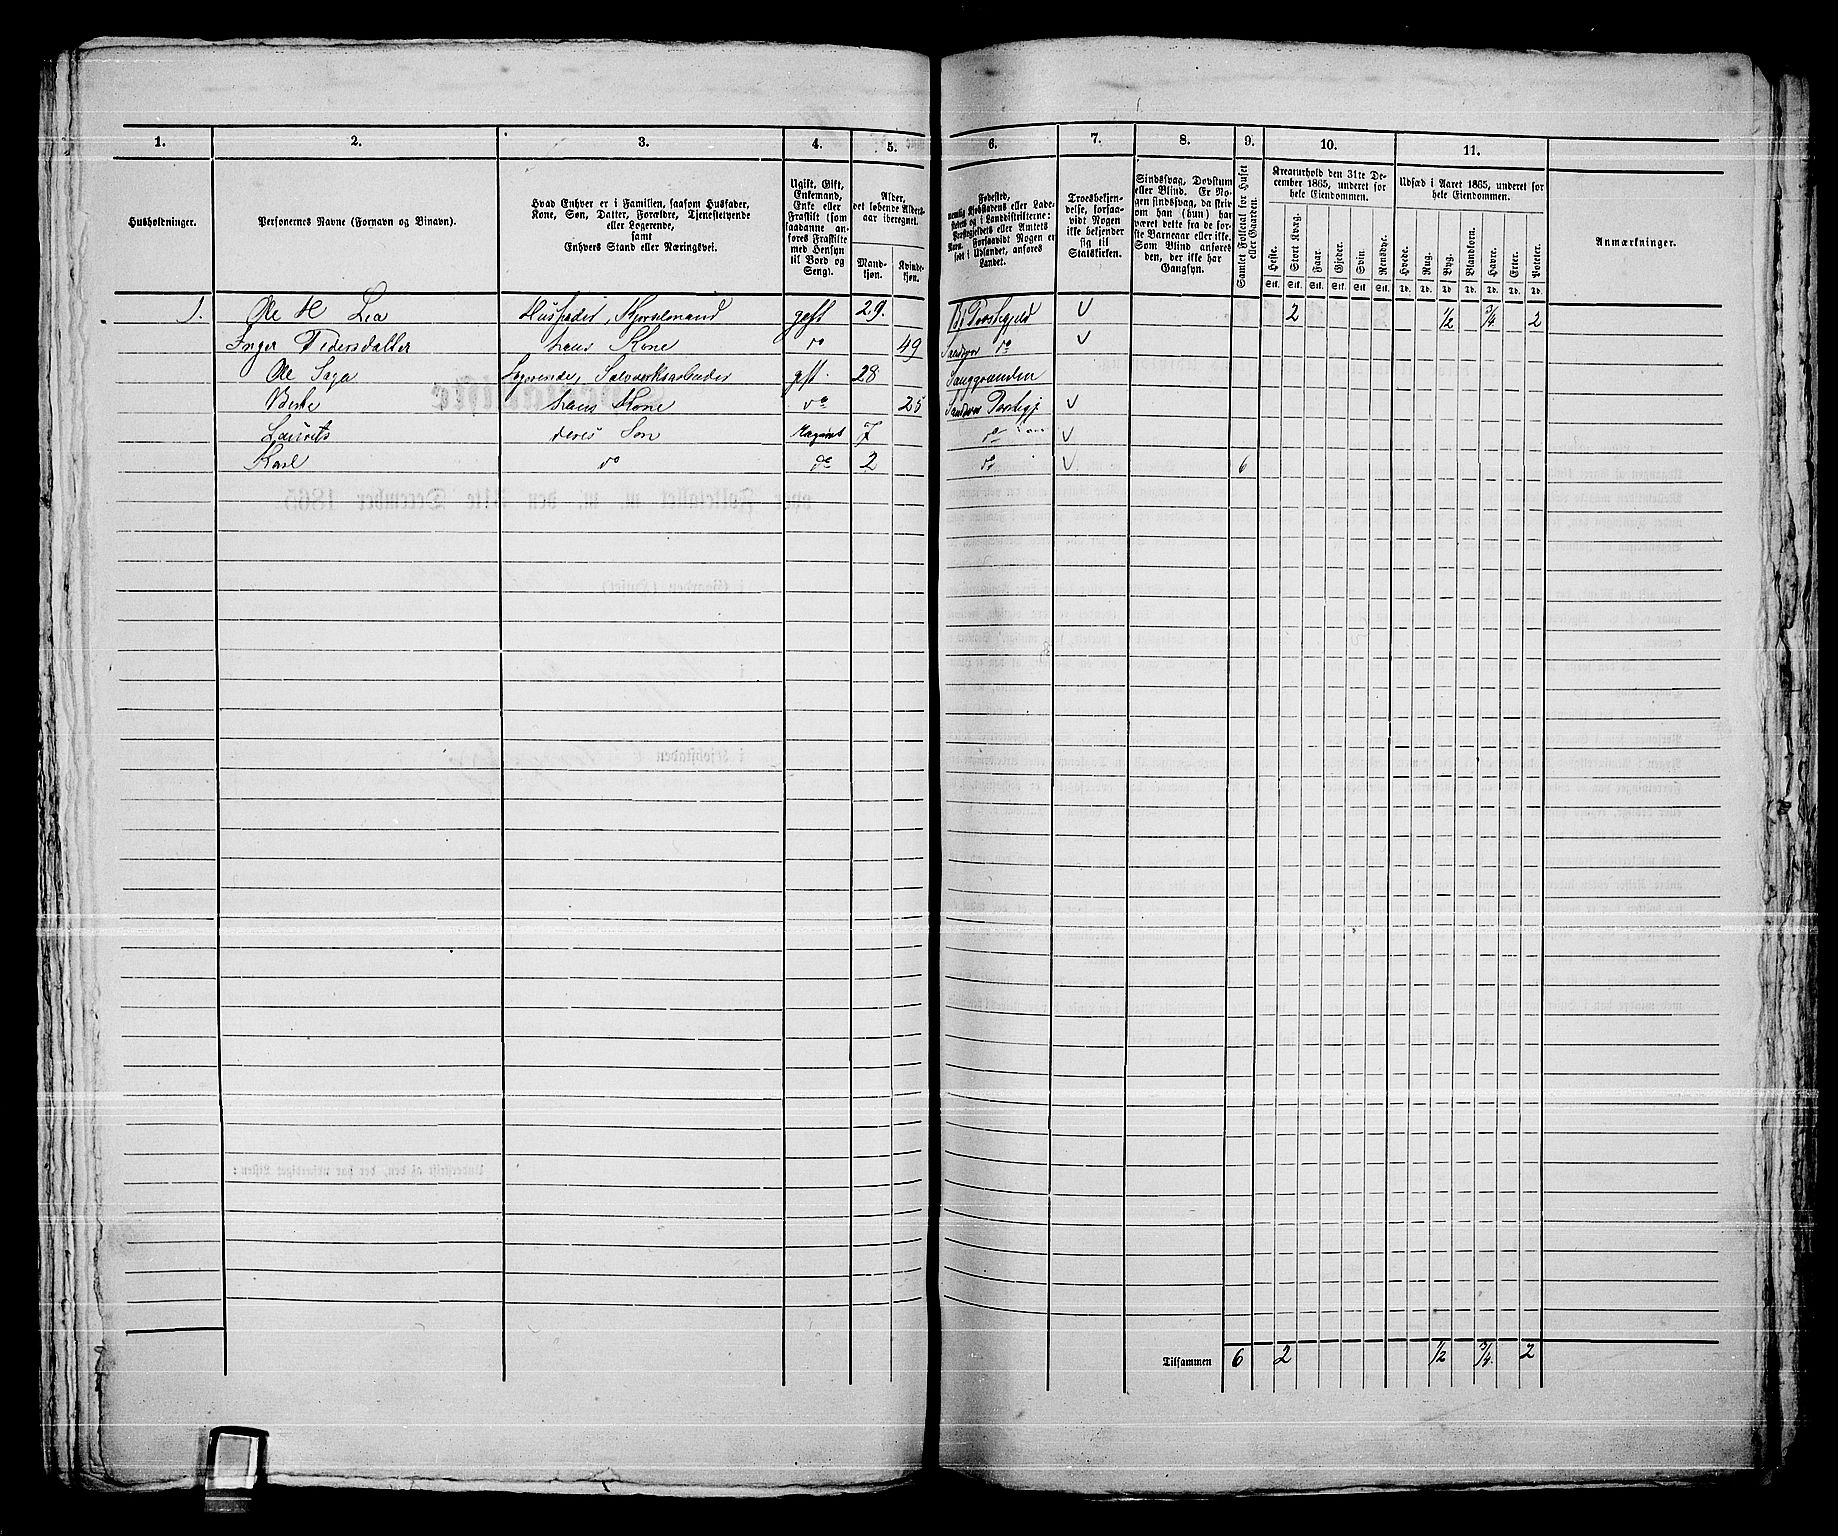 1. 2. 3. 4. 5. 6. 7. 8. 9. 10. 11.
Husholdninger.
Personernes Navne (Fornavn og Binavn).
Hvad Enhver er i Familien, saasom Husfader,
Kone, Søn, Datter, Forældre, Tjenestetyende
eller Logerende,
samt
Enhvers Stand eller Næringsvei.
Ugift, Gift,
Enkemand,
Enke eller
Fraskilt (som
saadanne an-
føres Fraskilte
med Hensyn
til Bord og
Seng).
Alder,
det løbende Alders-
aar iberegnet.
Mand-
kjøn.
Kvinde-
kjøn.
Fødested,
nemlig Kjøbstadens eller Lade-
stedets og i Landdistrikterne
Præstegjeldets eller Amtets
Navn. Forsaavidt Nogen er
født i Udlandet, anføres
Landet.
Troesbekjen-
delse, forsaa-
vidt Nogen
ikke bekjender
sig til
Statskirken.
Sindssvag, Døvstum
eller Blind. Er No-
gen sindssvag, da skriv
om han (hun) har
været dette fra de før-
ste Barneaar eller ikke.
Som Blind anføres
den, der ikke har
Gangsyn.
Samlet Folketal for Huset
eller Gaarden.
Kreaturhold den 31te De-
cember 1865, underet for
hele Eiendommen.
Heste. Stort Kvæg. Faar. Gjeder. Svin. Rensdyr.
Stk. Stk. Stk. Stk. Stk. Stk.
Udsæd i Aaret 1865, underet for
hele Eiendommen.
Hvede. Rug. Byg. Blandkorn. Havre. Erter. Poteter.
Td. Td. Td. Td. Td. Td. Td.
Anmærkninger.
1. Ole H Lia Husfader, gift 29. V 2 1/2 3/4 2
Inger Pedersdatter hans Kone do 49 do V
Ole Saga Logerende, gift 28
Berte hans Kone do 25 V
Laurits deres Søn 7 do V
Karl do do 2 do V 6
Tilsammen 6 2 1/2 3/4 2